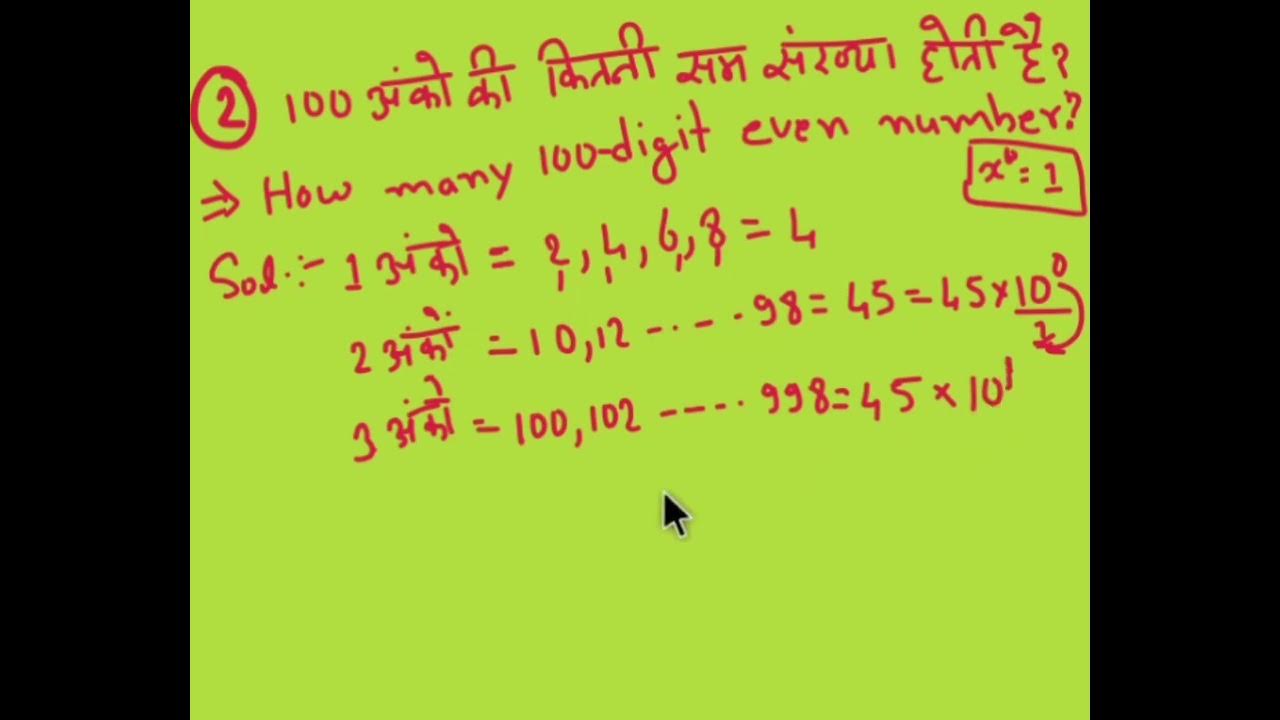 ② 100 अंको की कितनी सम संख्या होती है?
⇒ How many 100-digit even number?
x⁰ = 1
Sol. :- 1 अंको = 2, 4, 6, 8 = 4
2 अंकों = 10, 12 ----- 98 = 45 = 45 × 10⁰ 1
3 अंको = 100, 102 ----- 998 = 45 × 10¹